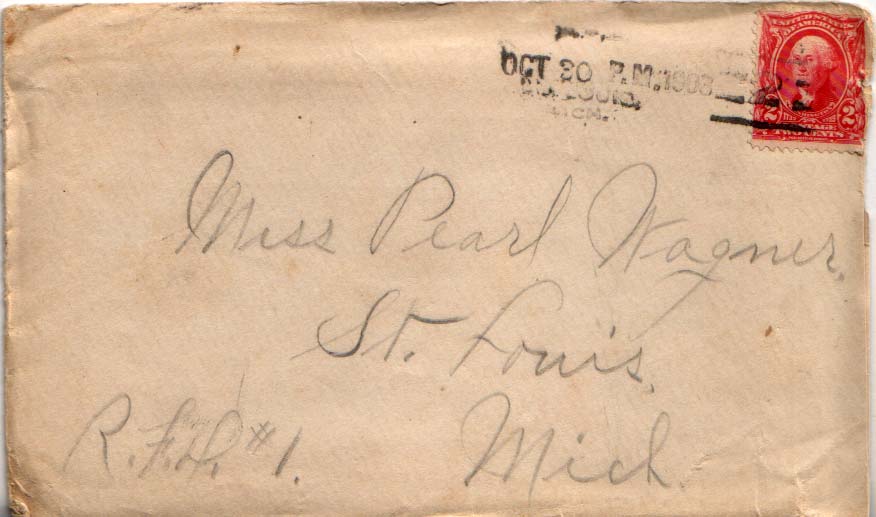 OCT 20 P.M. 1908
ST. LOUIS,
MICH.
UNITED STATES
OF AMERICA
2 2
POSTAGE
TWO CENTS
Miss Pearl Wagner,
St. Louis,
R.F.D. #1. Mich.